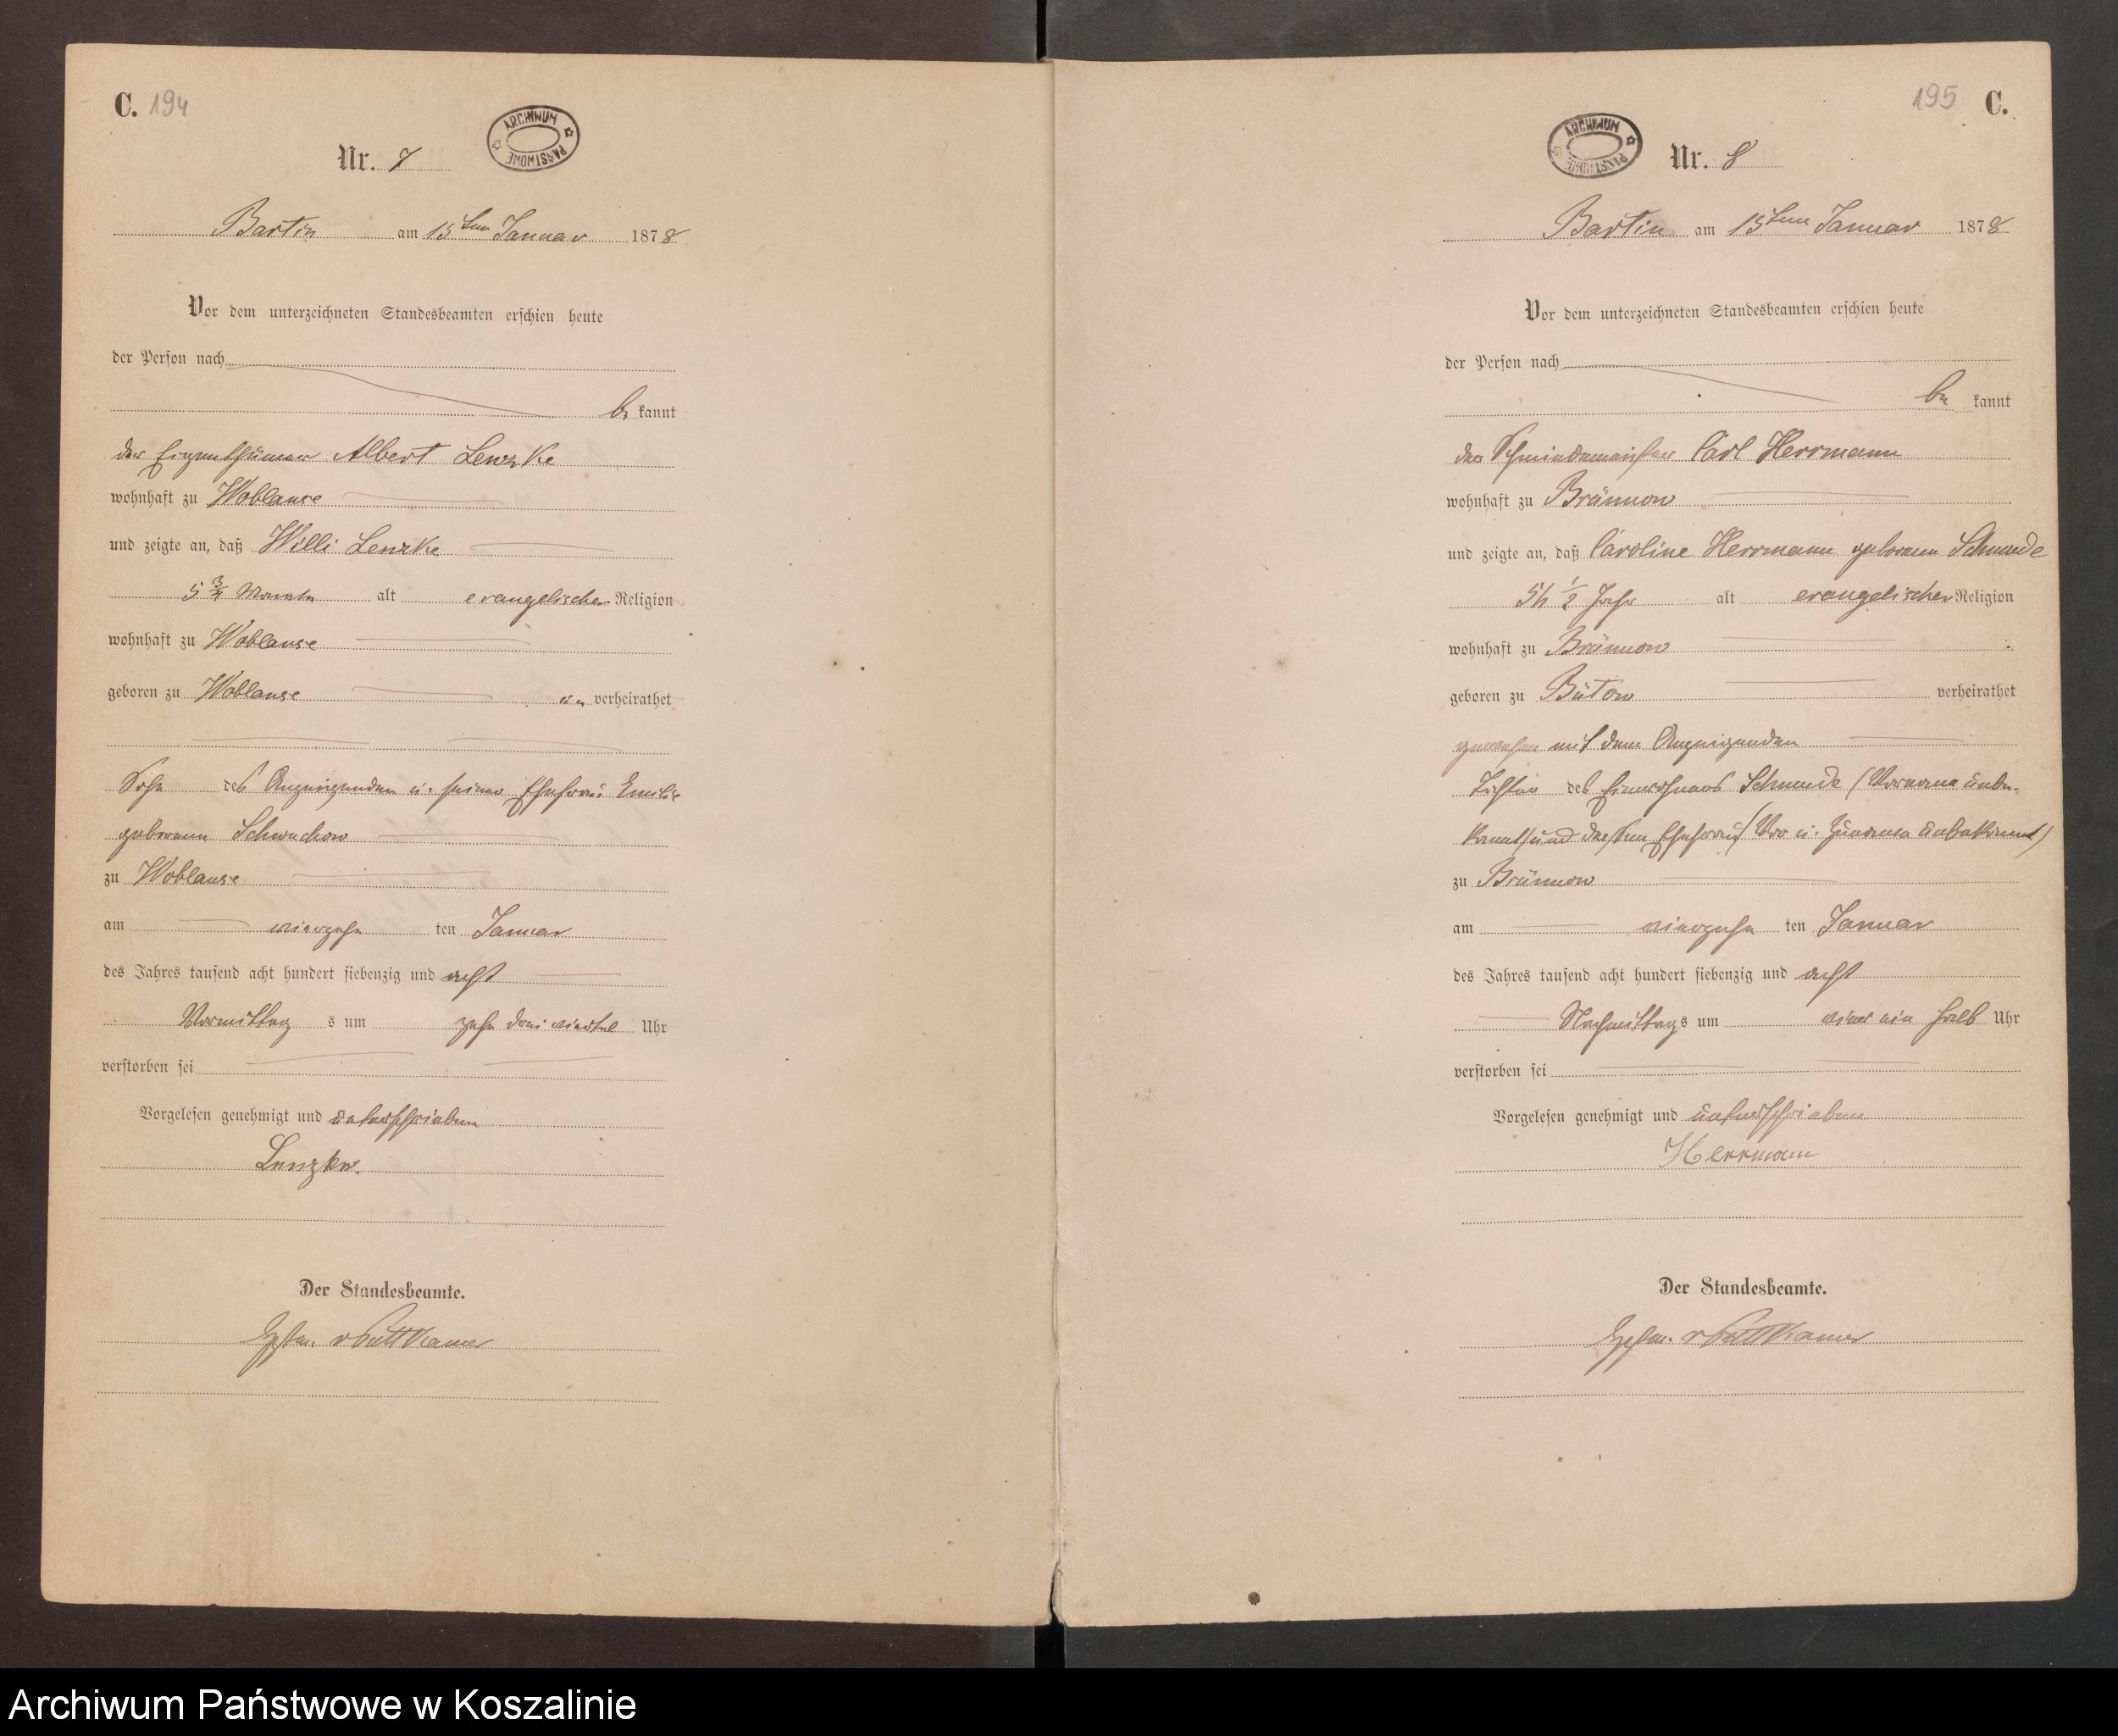 C. 194
ARCHIWUM PAŃSTWOWE
Nr. 7
Bartin am 15ten Januar 1878
Vor dem unterzeichneten Standesbeamten erschien heute
der Person nach
be kannt
der Eigenthümer Albert Lenzke
wohnhaft zu Woblanse
und zeigte an, daß Willi Lenzke
5 3/4 Monate alt evangelischer Religion
wohnhaft zu Woblanse
geboren zu Woblanse un verheirathet
Sohn des Anzeigenden u. seiner Ehefrau Emilie
geborenen Schwuchow
zu Woblanse
am vierzehn ten Januar
des Jahres tausend acht hundert siebenzig und acht
Vormittag s um zehn drei viertel Uhr
verstorben sei
Vorgelesen genehmigt und unterschrieben
Lenzke.
Der Standesbeamte.
v Puttkamer
195 C.
ARCHIWUM PAŃSTWOWE
Nr. 8
Bartin am 15ten Januar 1878
Vor dem unterzeichneten Standesbeamten erschien heute
der Person nach
be kannt
der Schmiedemeister Carl Herrmann
wohnhaft zu Brünnow
und zeigte an, daß Caroline Herrmann geborene Schmude
1/2 Jahr alt evangelischer Religion
wohnhaft zu Brünnow
geboren zu Bütow verheirathet
gewesen mit dem Anzeigenden
Tochter des Einwohners Schmude (Vorname unbe-
kannt) und dessen Ehefrau (Vor u. Zuname unbekannt)
zu Brünnow
am vierzehn ten Januar
des Jahres tausend acht hundert siebenzig und acht
Nachmittag s um ein halb Uhr
verstorben sei
Vorgelesen genehmigt und unterschrieben
Herrmann
Der Standesbeamte.
v Puttkamer
Archiwum Państwowe w Koszalinie